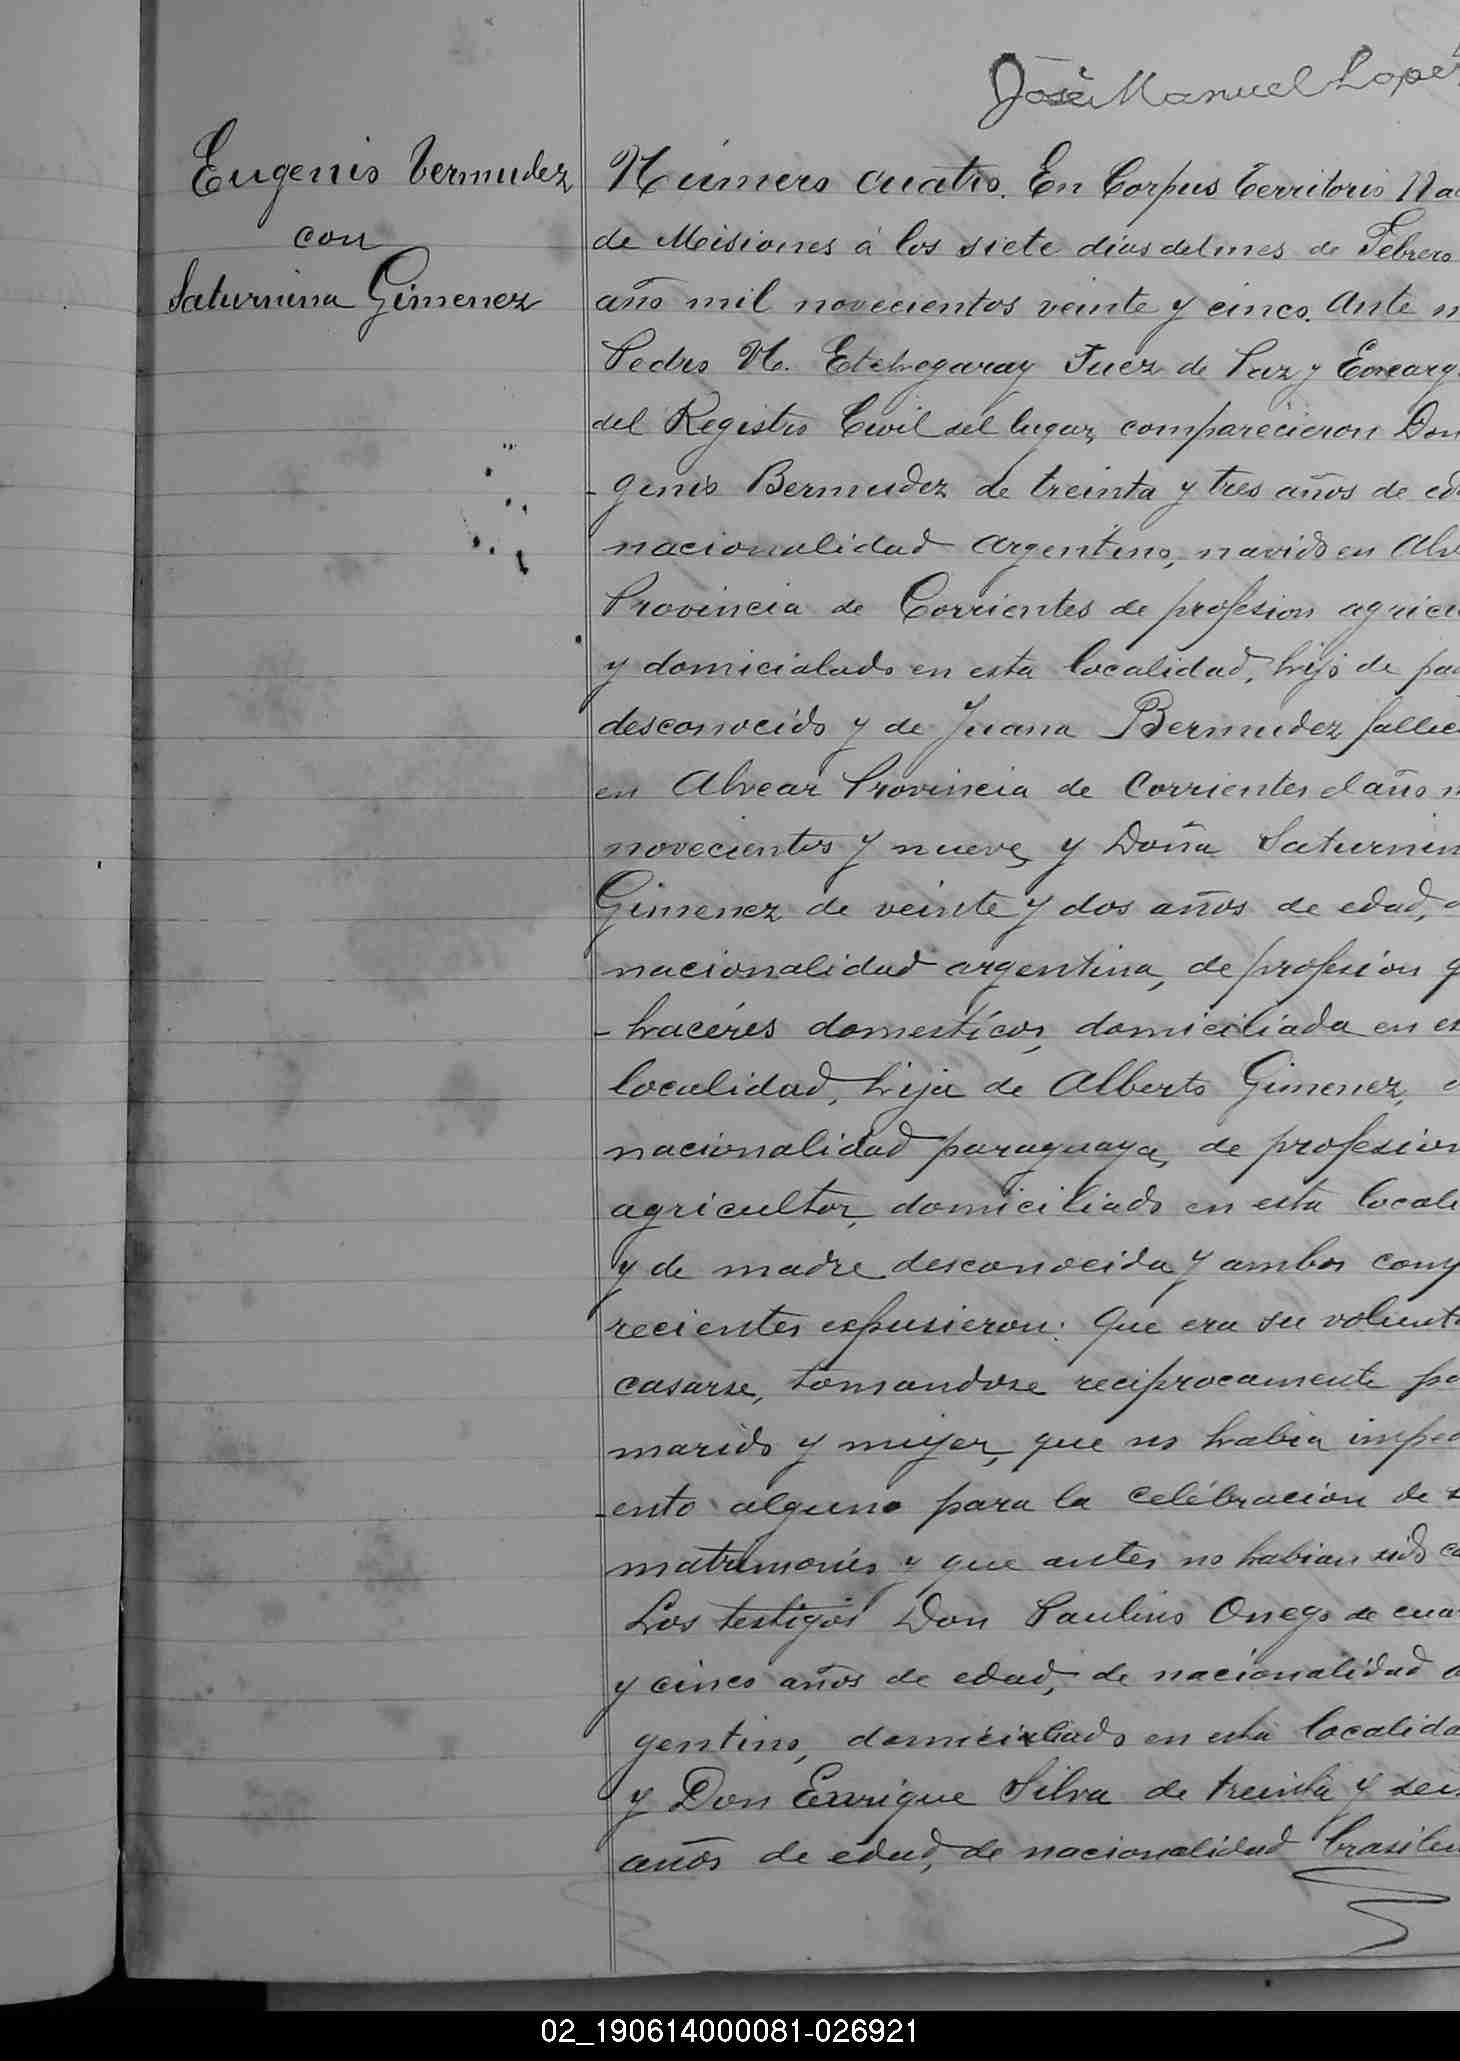 José Manuel Lopez
Eugenio Vermudez
con
Saturnina Gimenez
Número cuatro. En Corpus Territorio Na
de Misiones á los siete dias del mes de Febrero
año mil novecientos veinte y cinco. Ante m
Pedro M. Etchegaray Juez de Paz y Encarg
del Registro Civil del lugar, comparecieron Don
- genio Bermudez de treinta y tres años de ed
nacionalidad Argentino, navido en Alv
Provincia de Corrientes de profesion agricu
y domicialado en esta localidad, hijo de pa
desconocido y de Juana Bermudez fallec
en Alvear Provincia de Corrientes el año m
novecientos y nueve, y Doña Saturnin
Gimenez de veinte y dos años de edad, d
nacionalidad argentina, de profesion q
- hacéres domesticos, domiciliada en es
localidad, hija de Alberto Gimenez, d
nacionalidad paraguaya, de profesion
agricultor, domiciliado en esta locali
y de madre desconocida y ambos comp
recientes espusieron: Que era su volunt
casarse, tomandose reciprocamente po
marido y mujer, que no habia impe
- ento alguno para la celébracion de s
matrimonio y que antes no habian sido ca
Los testigos Don Paulino Onego de cua
y cinco años de edad, de nacionalidad a
gentino, domiciliado en esta localida
y Don Enrique Silva de treinta y seis
años de edad, de nacionalidad brasile
02_190614000081-026921